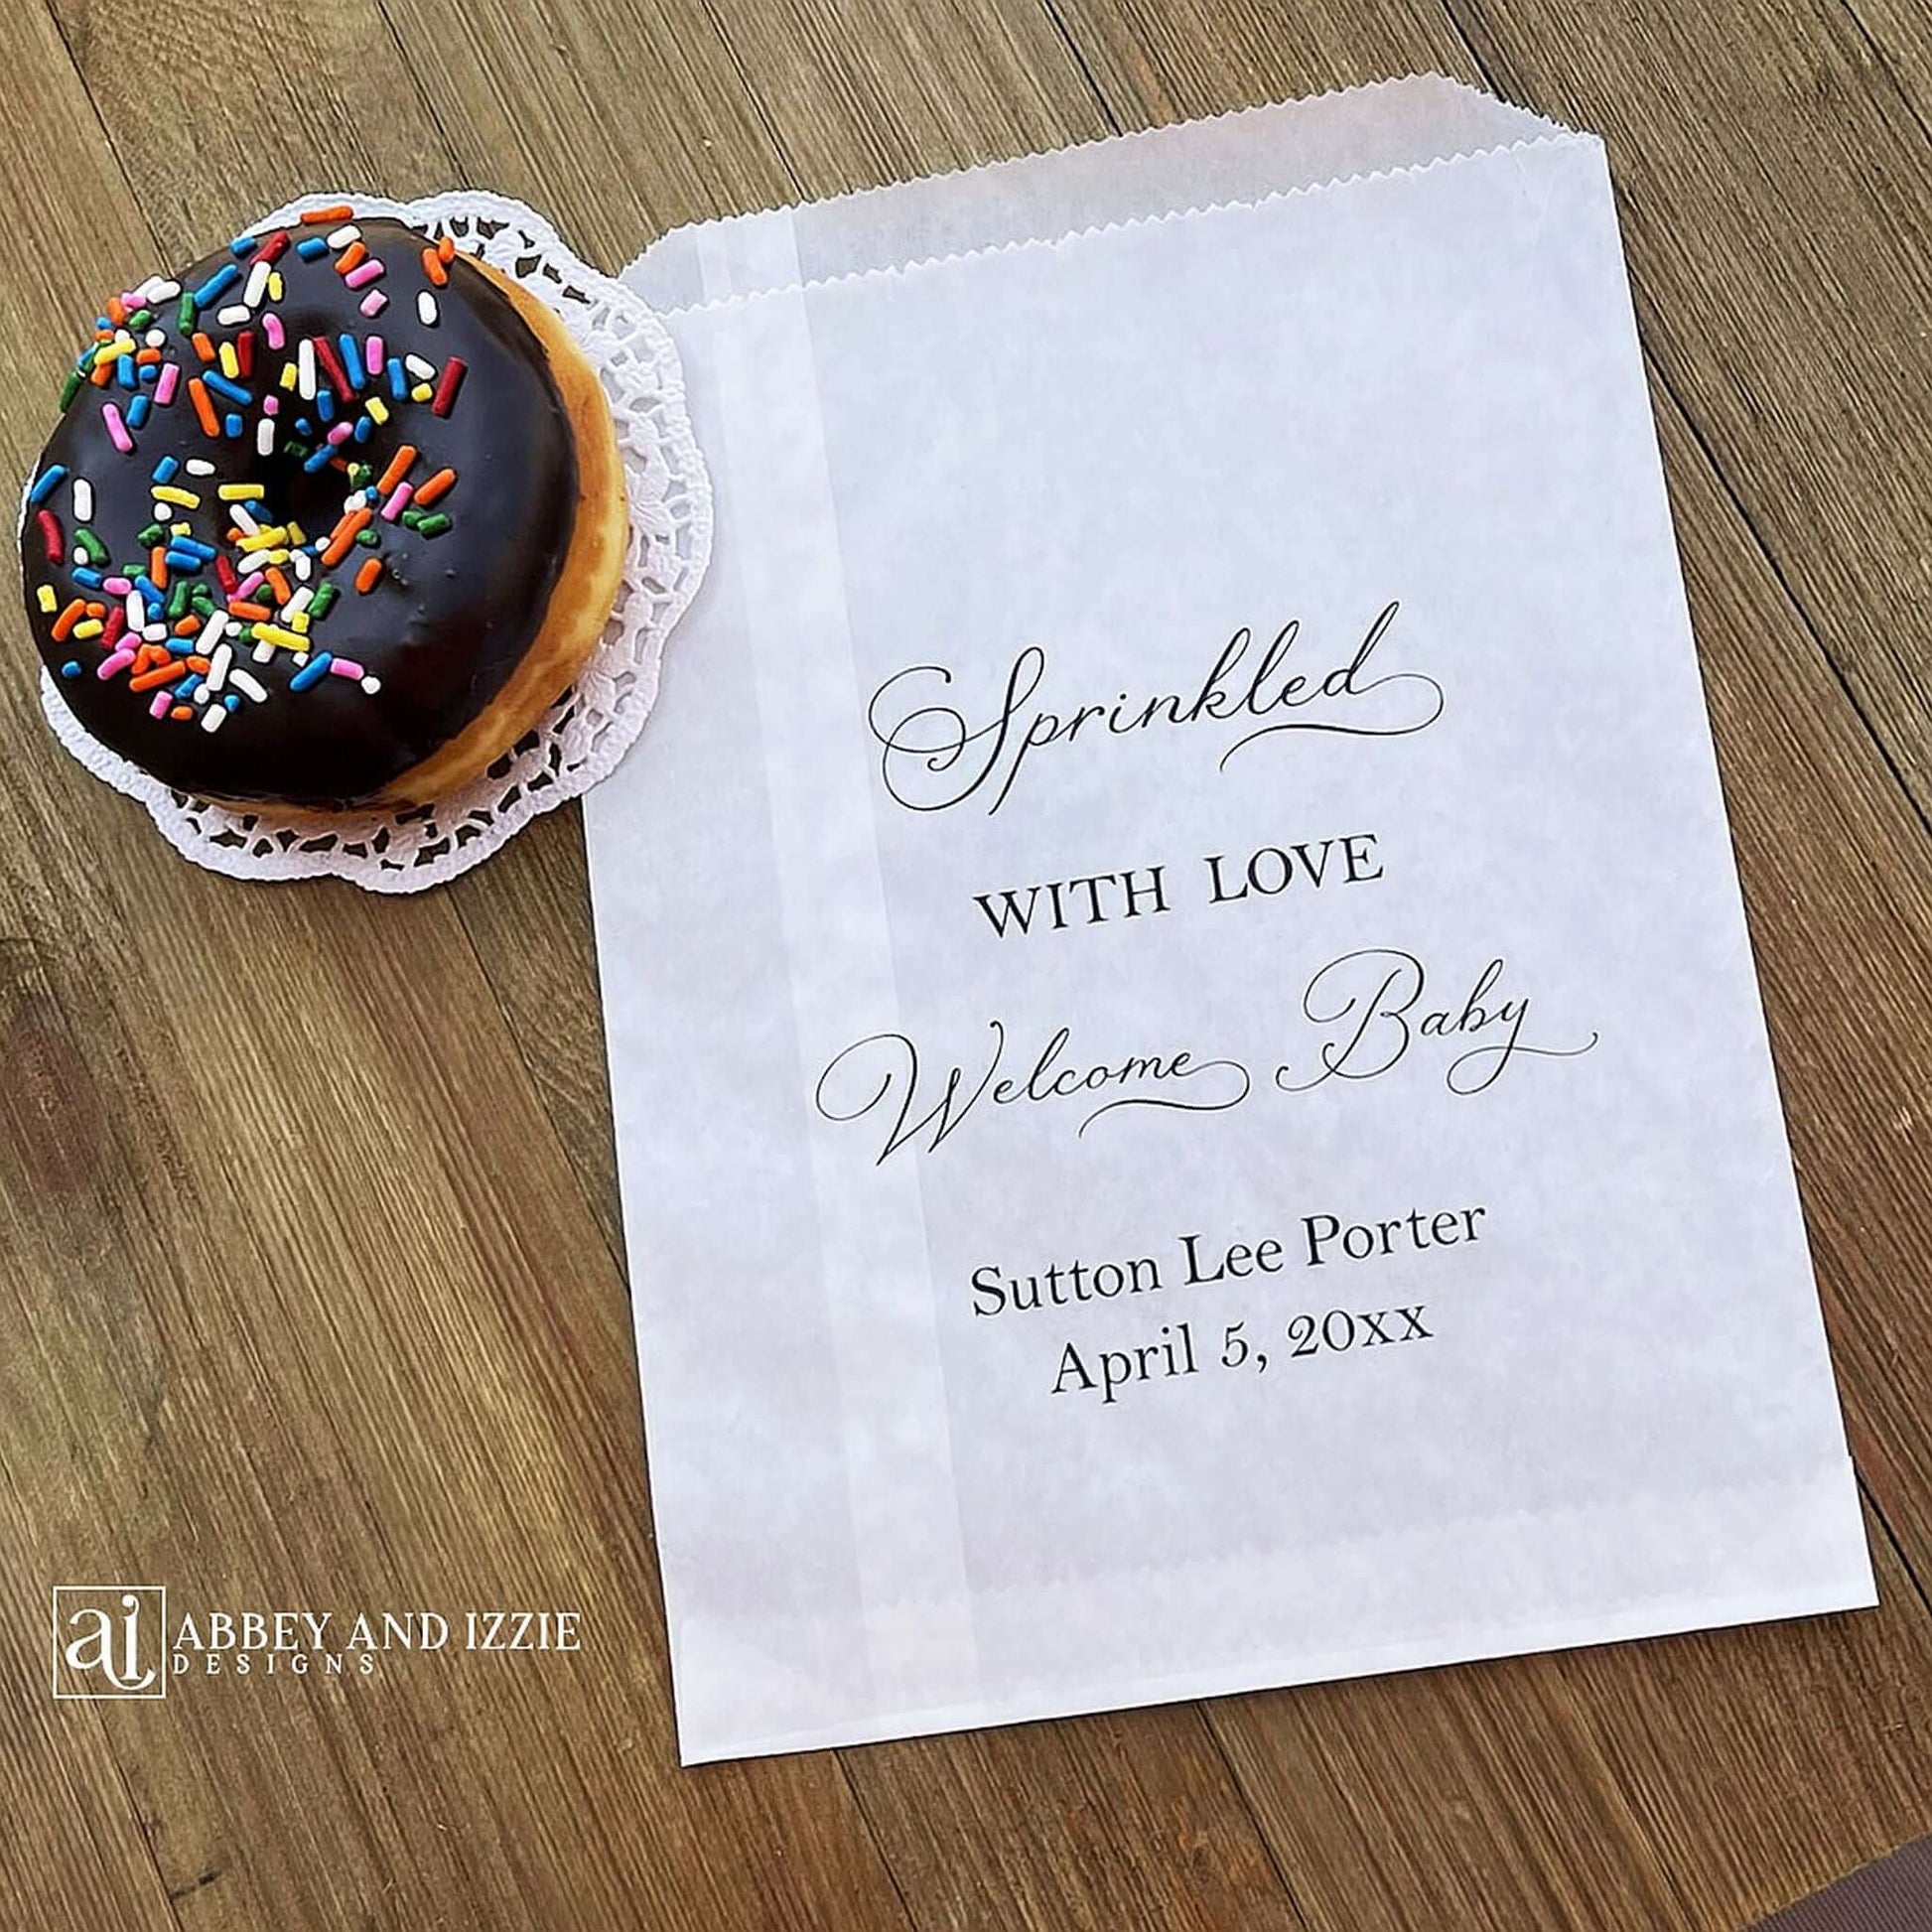 Sprinkled
WITH LOVE
Welcome Baby
Sutton Lee Porter
April 5, 20xx
ai ABBEY AND IZZIE
DESIGNS